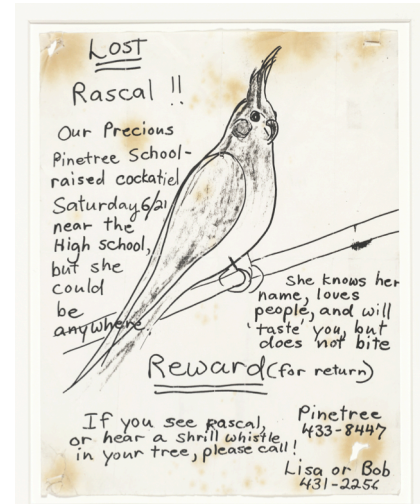 LOST
Rascal !!
Our Precious
Pinetree School-
raised cockatiel
Saturday 6/21
near the
High school,
but she
could
be
anywhere.
She knows her
name, loves
people, and will
'taste' you, but
does not bite
Reward (for return)
If you see Rascal,
or hear a shrill whistle
in your tree, please call!
Pinetree
433-8447
Lisa or Bob
431-2256